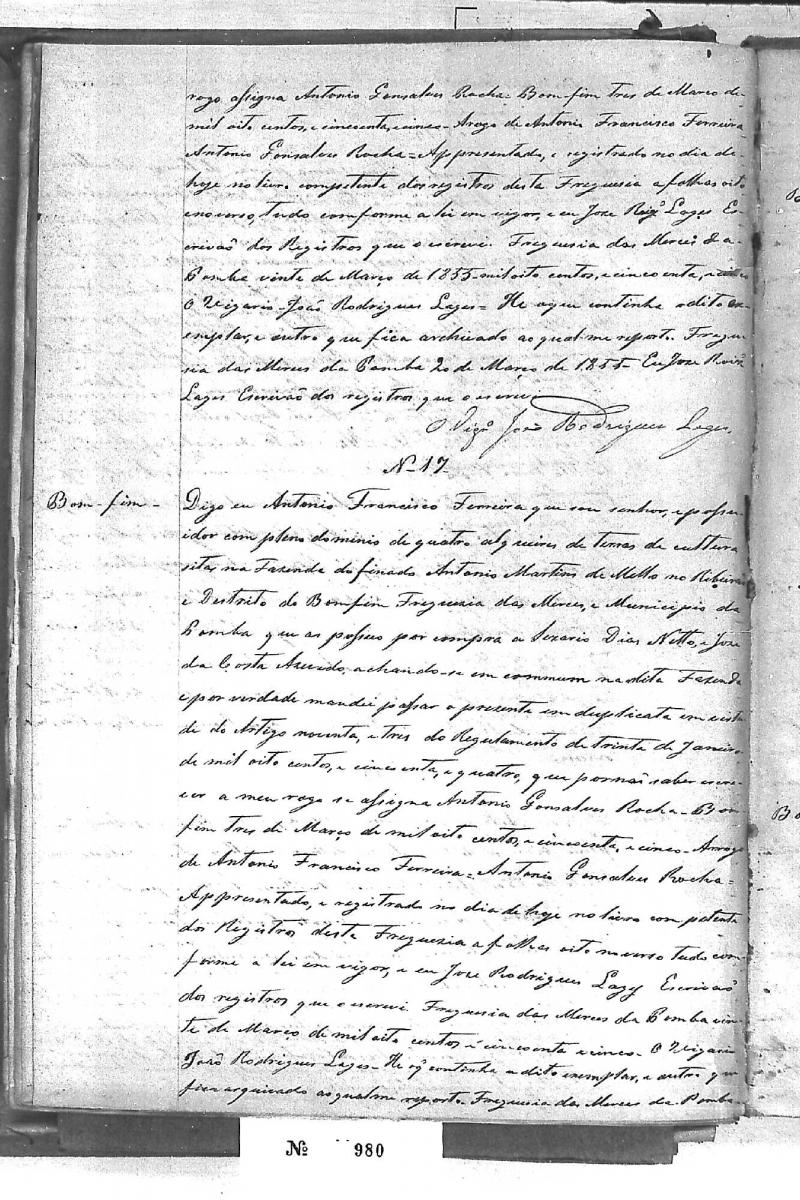 rogo assigna Antonio Gonsalves Rocha= Bom-fim tres de Marco de
mil oito centos, e cincoenta, e cinco- Arogo de Antonio Francisco Ferreira-
Antonio Gonsalves Rocha= Appresentado, e registrado no dia de
hoje no livro competente dos registros desta Freguesia a folhas oito
eno verso, tudo conforme a lei em vigor, e eu Jose Roiz Lages Es-
crivaõ dos Registros que o escrevi. Freguesia das Merces da
Pomba vinte de Março de 1855- mil oito centos, e cincoenta, e cinco
O Vigario- João Rodrigues Lages= He o que continha o dito ex-
emplar, e outro que fica archivado ao qual me reporto. Fregue-
sia das Merces da Pomba 20 de Março de 1855- Eu Jose Roiz
Lages Escrivaõ dos registros que o escrevi
O Vigrº João Rodrigues Lages.
N- 17-
Bom-fim-
Digo eu Antonio Francisco Ferreira que sou senhor, e possu-
idor com pleno dominio de quatro alqueires de terras de cultura
sitas na Fazenda do finado Antonio Martins de Mello no Ribeiraõ
e Destrito do Bomfim Freguezia das Merces, e Municipio da
Pomba que as possuo por compra a Sezario Dias Netto, e Jose
da Costa Azevedo, achando-se em commum na dita Fazenda
e por verdade mandei passar o presente em duplicata em virtu-
de do Artigo noventa, e tres do Regulamento de trinta de Janeiro
de mil oito centos, e cincoenta, e quatro, que por naõ saber escre-
ver a meu rogo se assigna Antonio Gonsalves Rocha- Bom
fim tres de Março de mil oito centos, e cincoenta, e cinco- Arrogo
de Antonio Francisco Ferreira= Antonio Gonsalves Rocha=
Appresentado, e registrado no dia de hoje no livro competente
dos Registros desta Freguezia a folhas oito no verso tudo con-
forme a lei em vigor, e eu Jose Rodrigues Lages Escrivaõ
dos registros que o escrevi. Freguesia das Merces da Pomba vin-
te de Março de mil oito centos e cincoenta e cinco- O Vigario
João Rodrigues Lages- He oq continha o dito exemplar, e outro que
fica arquivado ao qual me reporto. Freguesia das Merces da Pomba
Nº 980